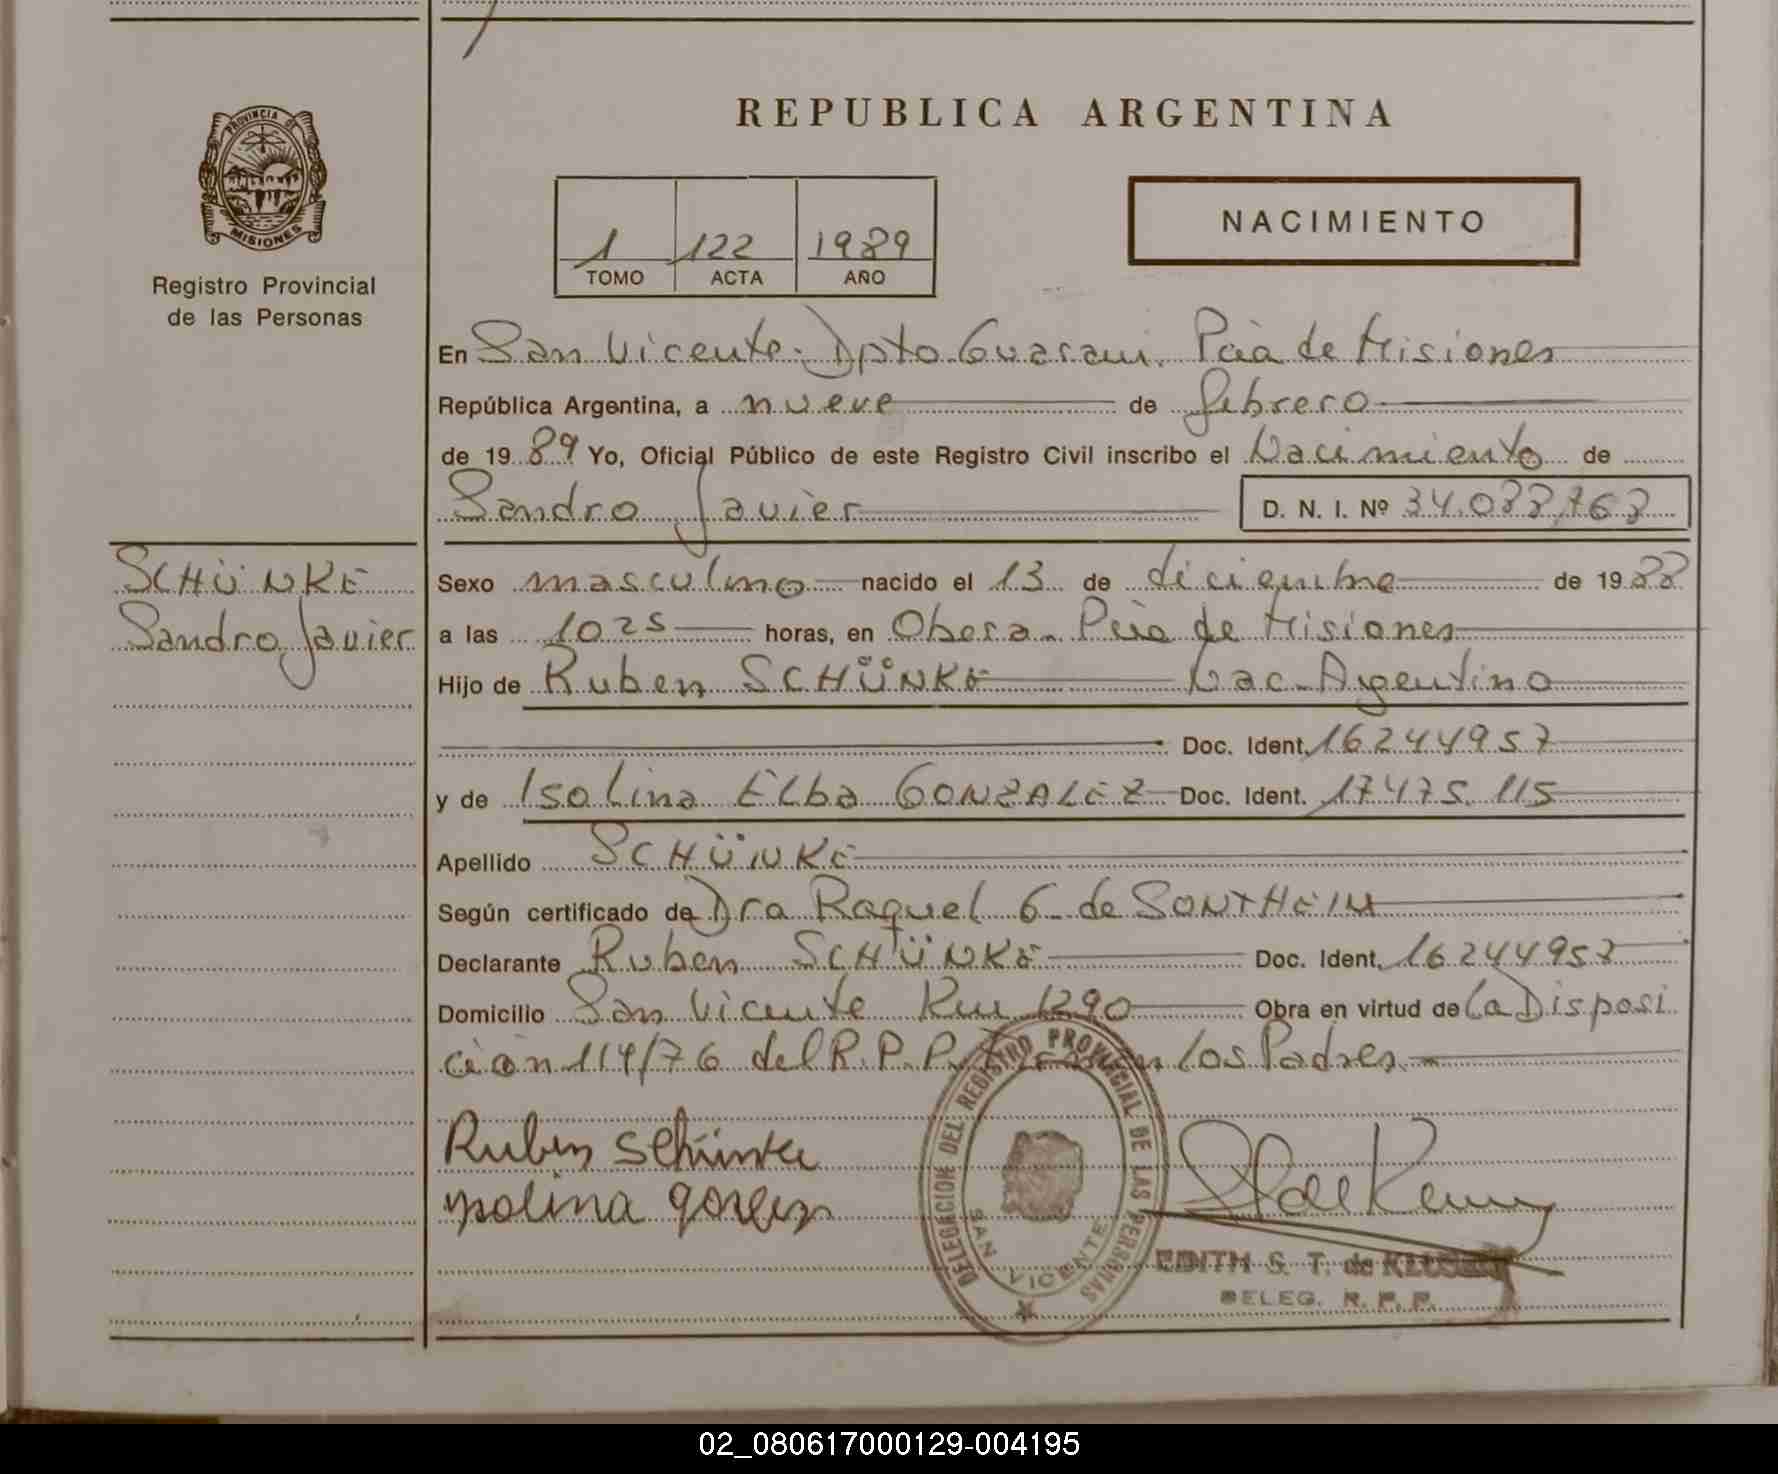 REPUBLICA ARGENTINA
PROVINCIA DE MISIONES
Registro Provincial
de las Personas
1 122 1989
TOMO ACTA AÑO
NACIMIENTO
En San Vicente. Dpto Guarani. Pcia de Misiones
República Argentina, a nueve de febrero
de 1989 Yo, Oficial Público de este Registro Civil inscribo el Nacimiento de
Sandro Javier D. N. I. Nº
SCHÜNKE
Sandro Javier
Sexo masculino nacido el 13 de diciembre de 1988
a las 10 25 horas, en Obera. Pcia de Misiones
Hijo de Ruben SCHÜNKE Nac. Argentino
Doc. Ident. 16244957
y de Isolina Elba GONZALEZ Doc. Ident. 17475.115
Apellido SCHÜNKE
Según certificado de Dra Raquel G. de SONTHEIM
Declarante Ruben SCHÜNKE Doc. Ident. 16244957
Domicilio San Vicente Km 1290 Obra en virtud de La Disposi
ción 114/76 del R.P.P. Firman los Padres.
Ruben Schünke
ysolina gonzalez
DELEGACION DEL REGISTRO PROVINCIAL DE LAS PERSONAS
SAN VICENTE
EDITH G. T. de
DELEG. R. P. P.
02_080617000129-004195